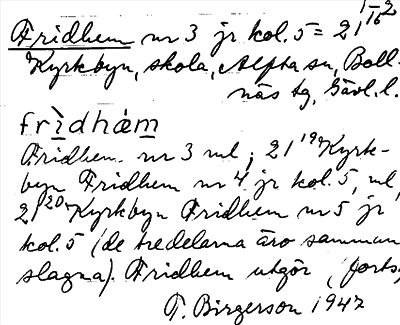 Fridhem nr 3 jr kol. 5 = 21 1-162
Kyrkbyn, skola, Alfta sn, Boll-
näs tg, Gävl. l.
fridhäm
Fridhem nr 3 ml; 21 19 Kyrk-
byn Fridhem nr 4 jr kol. 5, ml,
21 20 Kyrkbyn Fridhem nr 5 jr
kol. 5 (de tredelarna äro samman
slagna). Fridhem utgör (forts,
T. Birgerson 1947